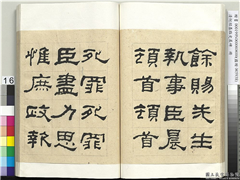 餘賜先生
執事臣晨
頓首頓首
死罪死罪
臣盡力思
惟庶政報
16